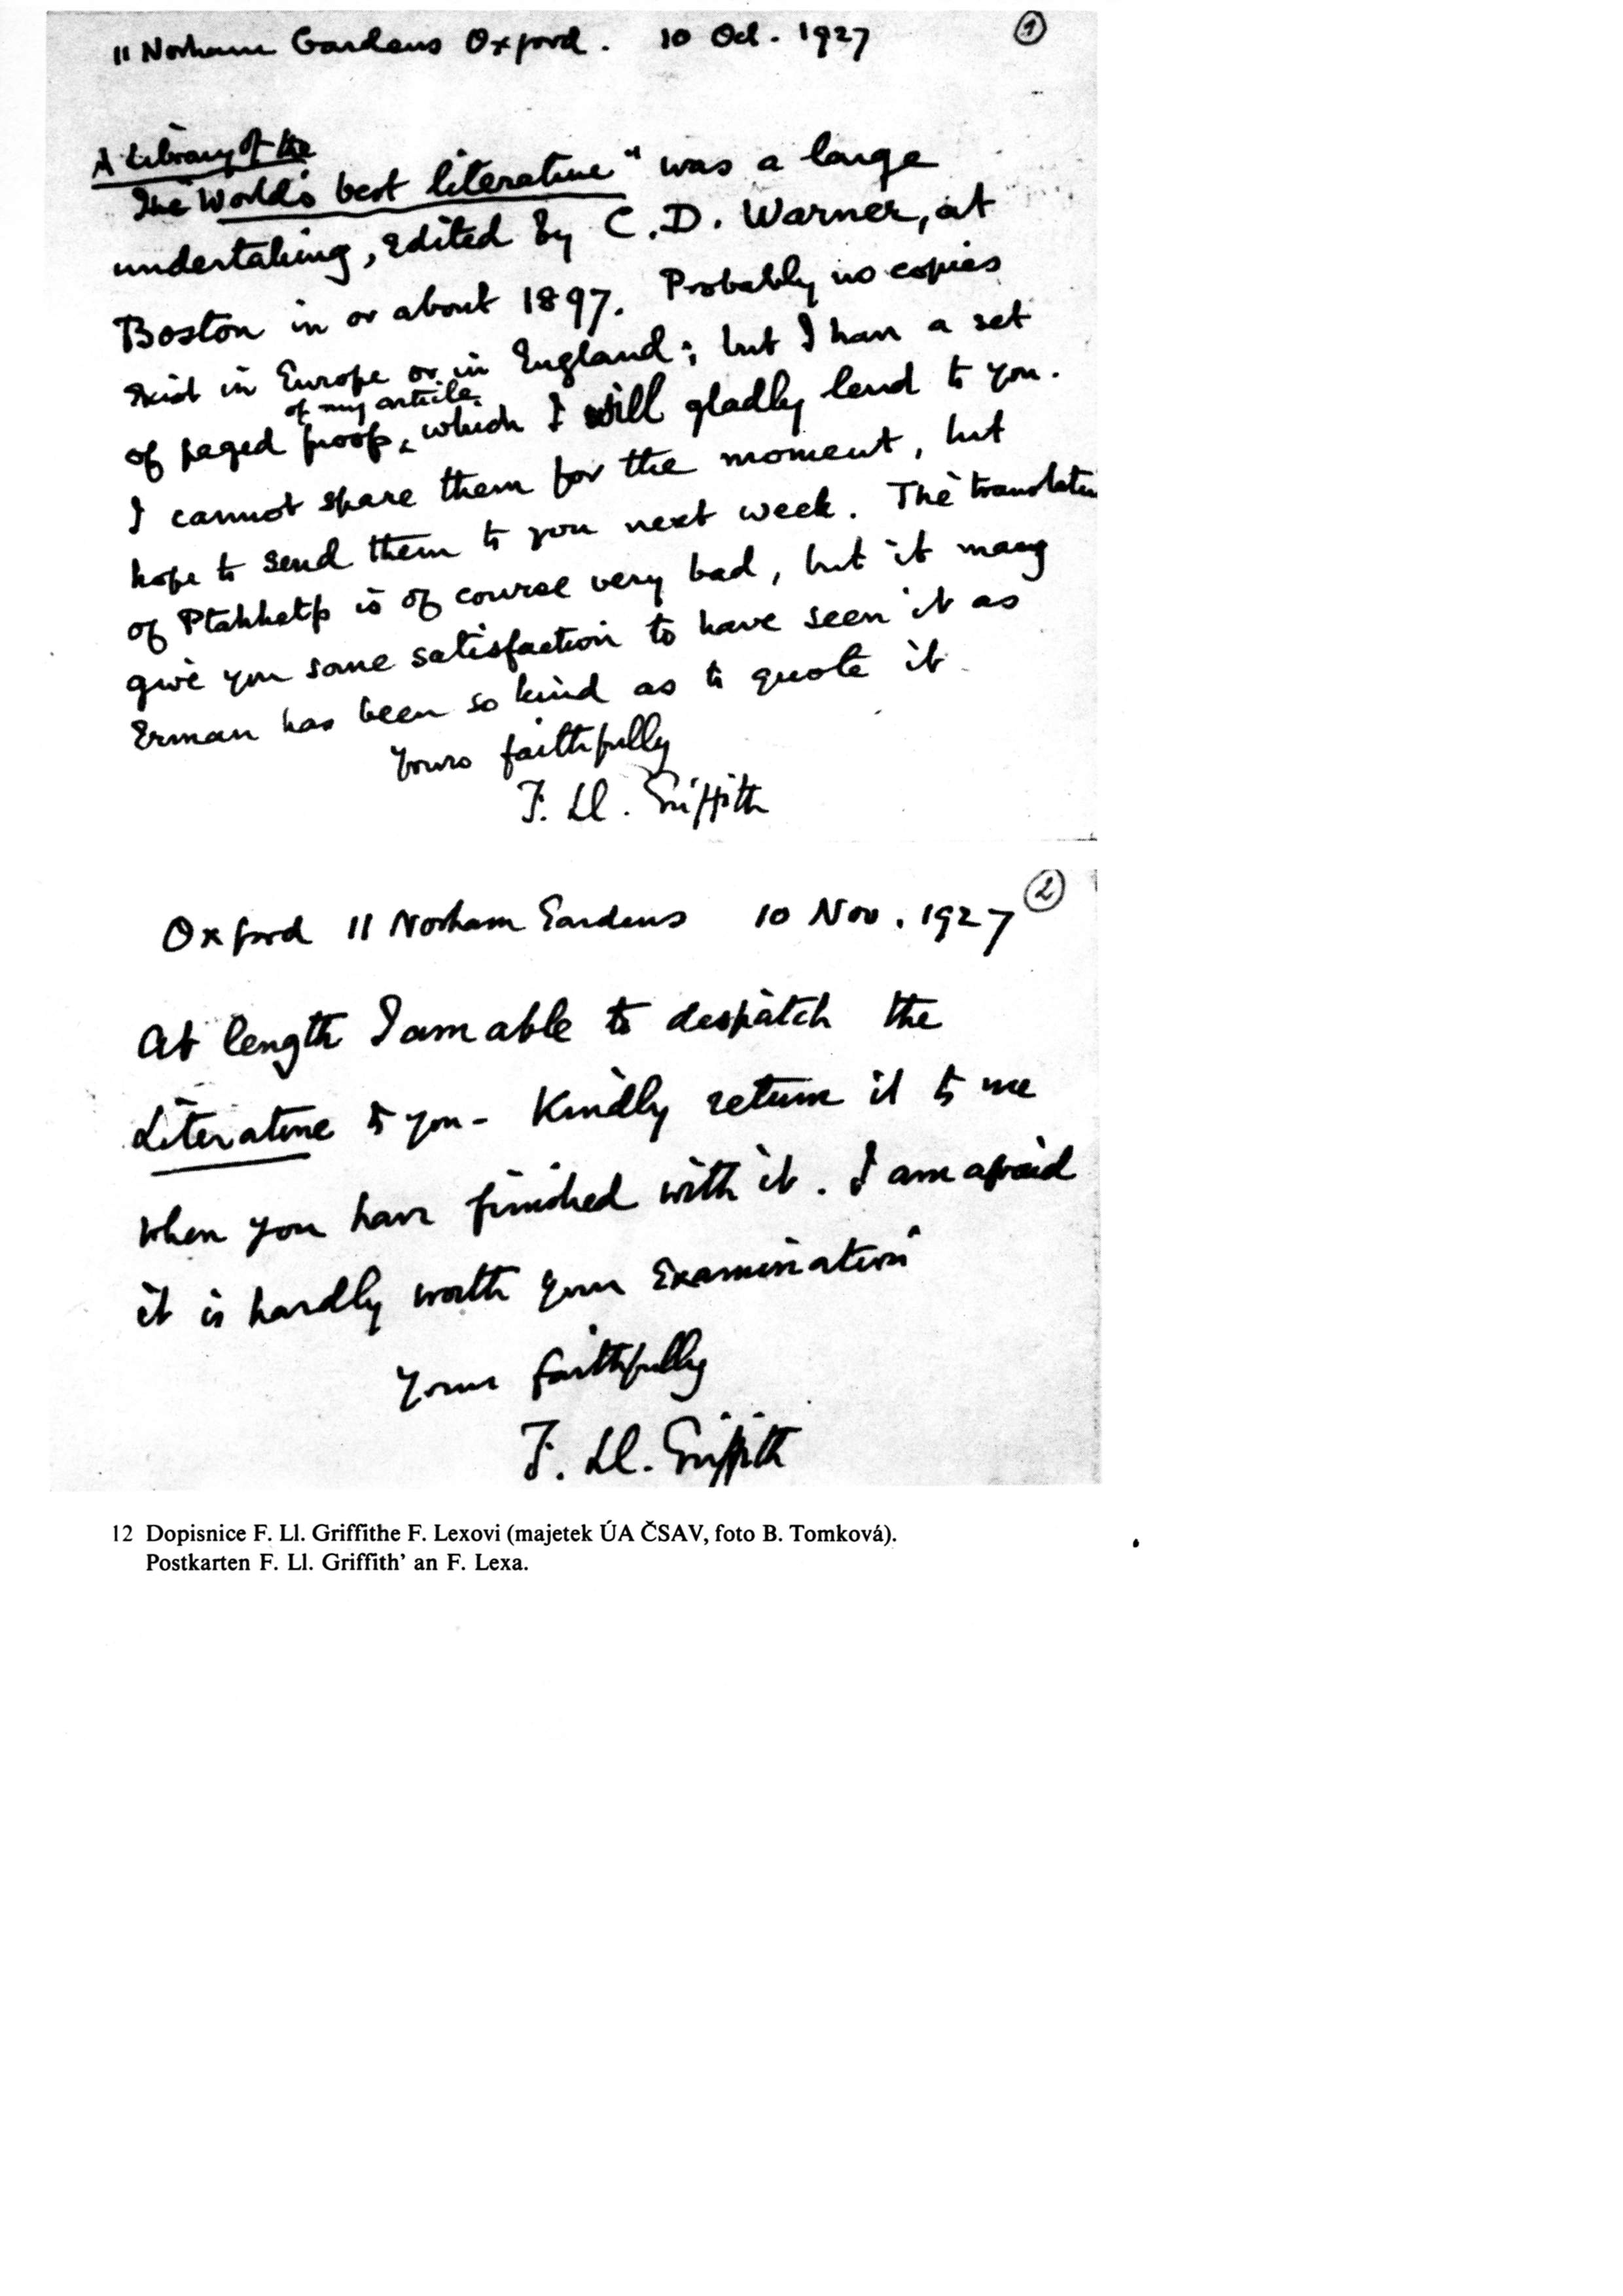 11 Norham Gardens Oxford. 10 Oct. 1927 ①
A Library of the
The "World's best literature" was a large
undertaking, edited by C.D. Warner, at
Boston in or about 1897. Probably no copies
exist in Europe or in England; but I have a set
of my article
of paged proofs, which I will gladly lend to you.
I cannot spare them for the moment, but
hope to send them to you next week. The translatio
of Ptahhetp is of course very bad, but it may
give you some satisfaction to have seen it as
Erman has been so kind as to quote it.
Yours faithfully
F. Ll. Griffith
Oxford 11 Norham Gardens 10 Nov. 1927 ②
At length I am able to despatch the
Literature to you - Kindly return it to me
when you have finished with it. I am afraid
it is hardly worth your examination
Yours faithfully
F. Ll. Griffith
12 Dopisnice F. Ll. Griffithe F. Lexovi (majetek ÚA ČSAV, foto B. Tomková).
Postkarten F. Ll. Griffith' an F. Lexa.